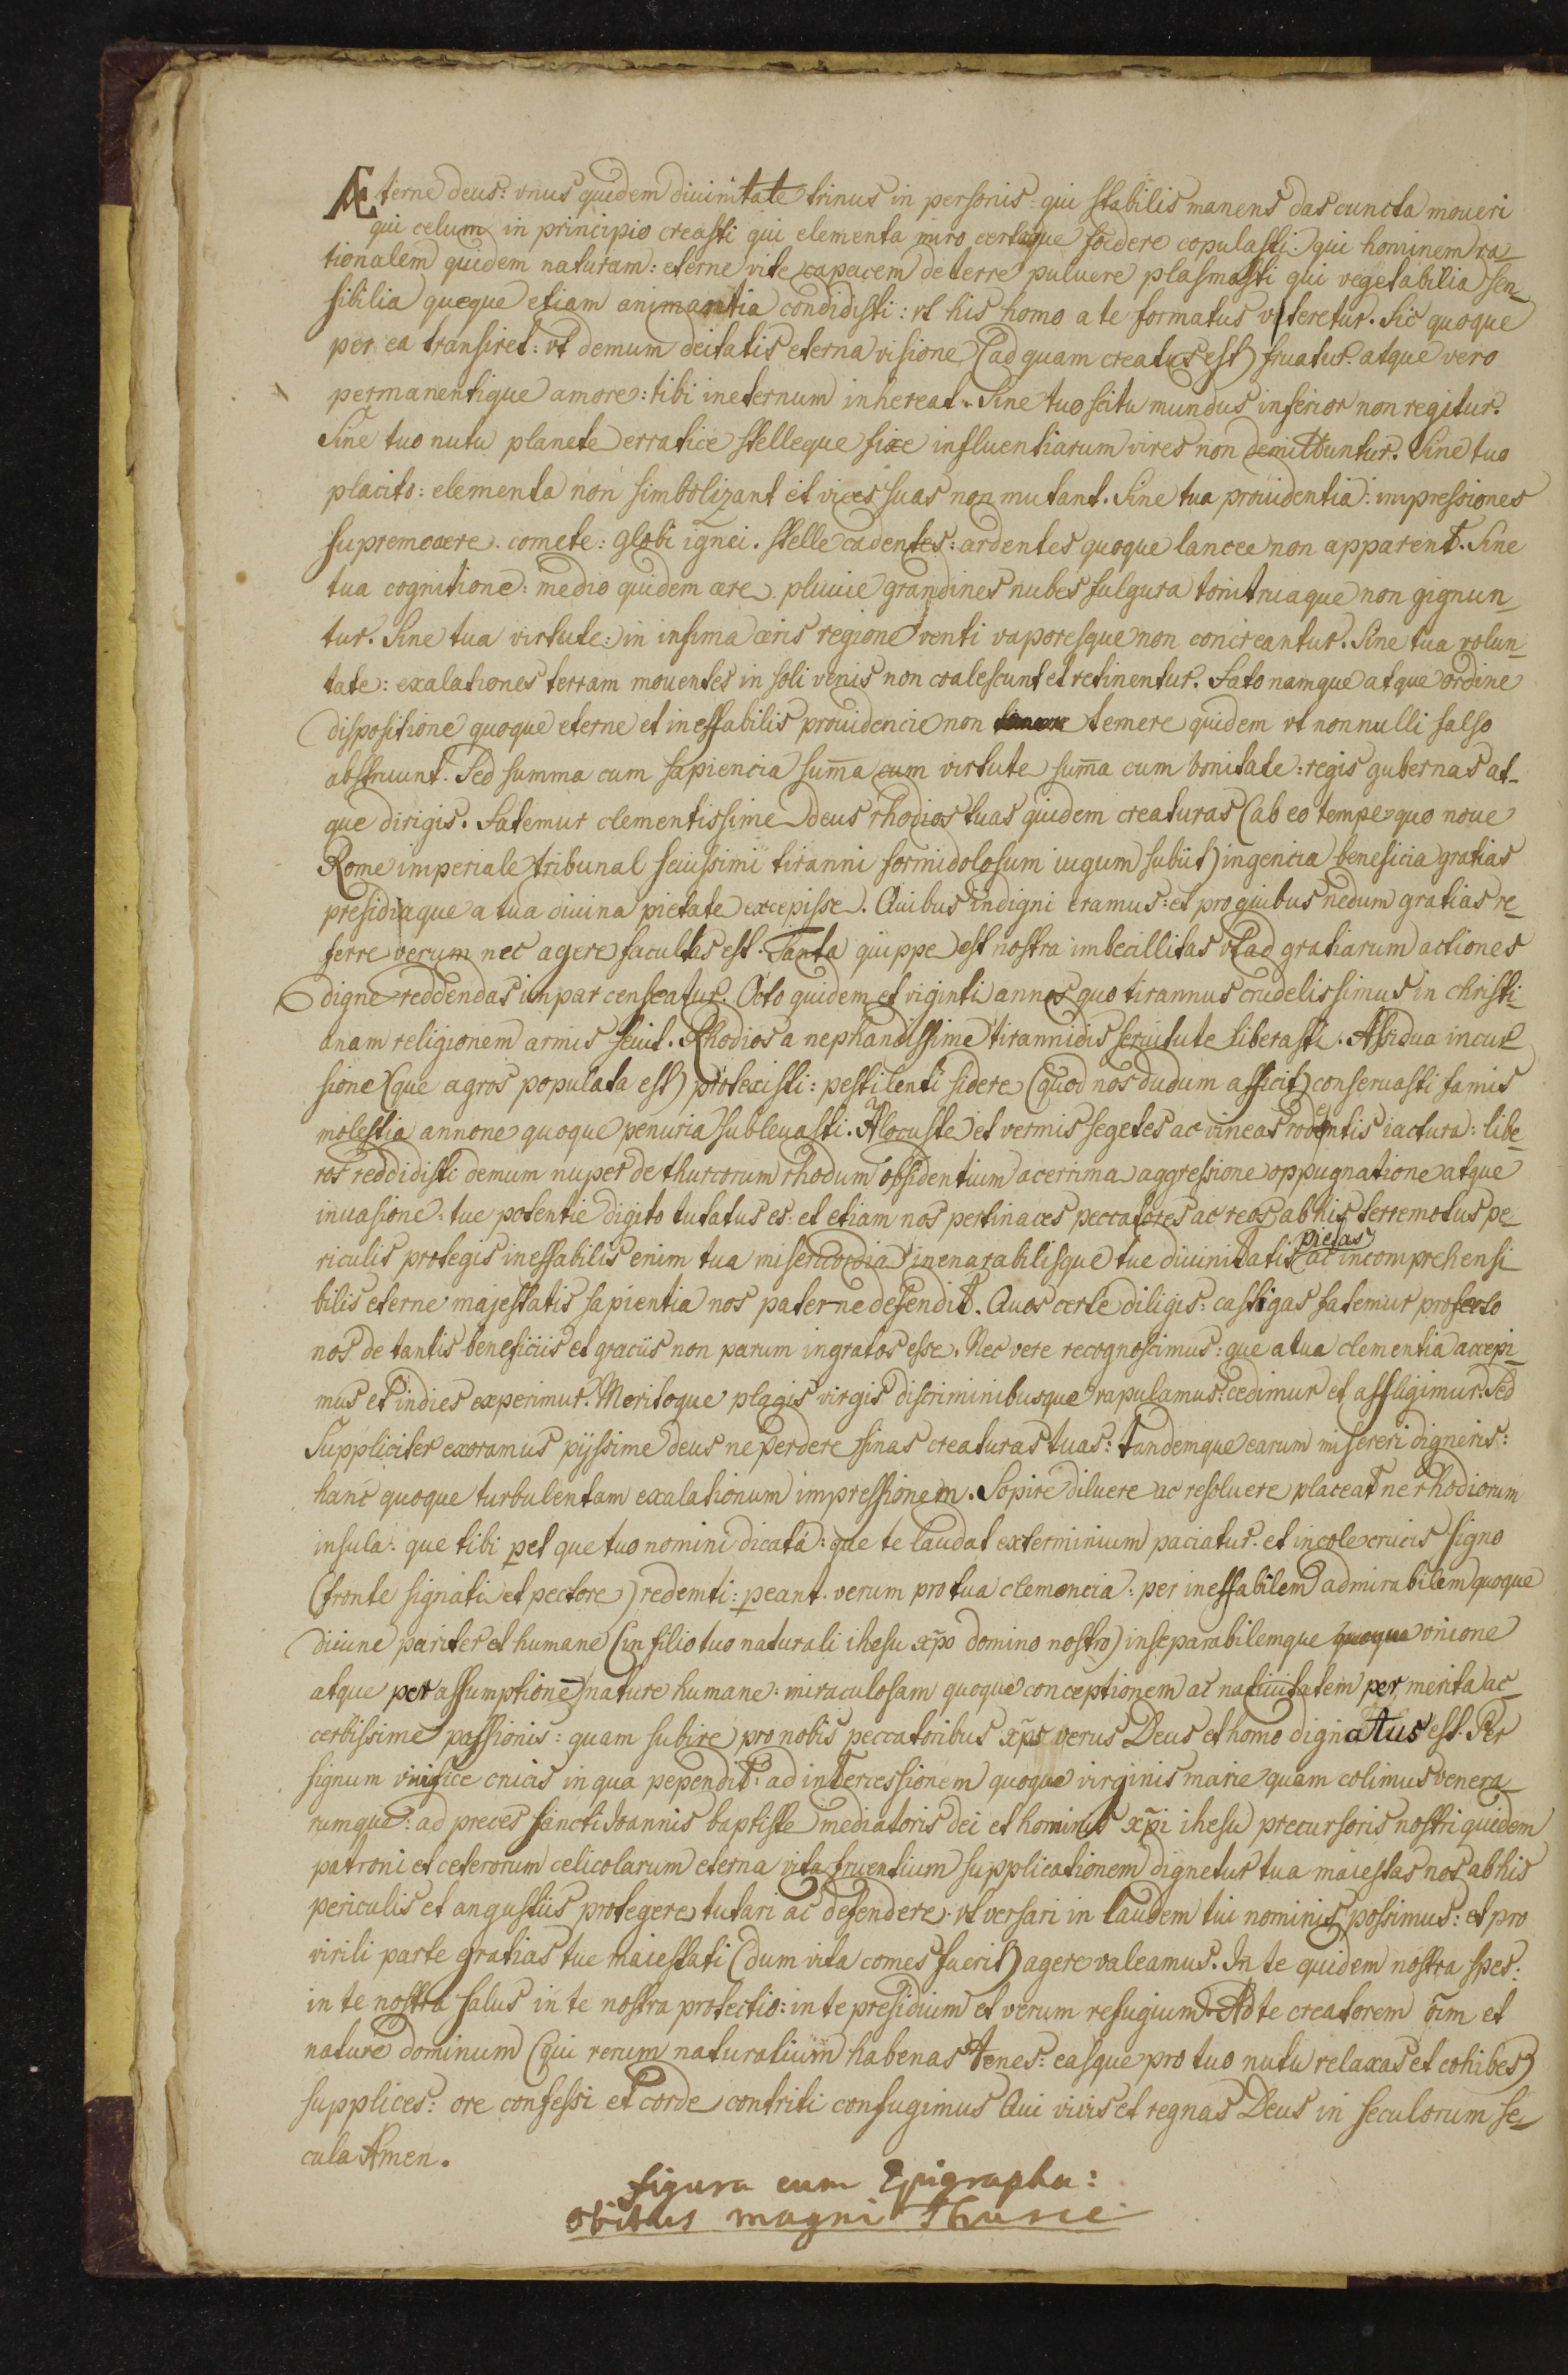 Æterne deus: vnus quidem diuinitate trinus in personis: qui stabilis manens das cuncta moueri
qui celum in principio creasti qui elementa miro certoque foedere copulasti: qui hominem ra-
tionalem quidem naturam: eterne vite capacem de terre puluere plasmasti qui vegetabilia sen-
sibilia queque etiam animantia condidisti: vt his homo a te formatus vteretur. Sic quoque
per ea transiret: vt demum deitatis eterna visione (ad quam creatus est) fruatur. atque vero
permanentique amore: tibi ineternum inhereat. Sine tuo scitu mundus inferior non regitur.
Sine tuo nutu planete erratice stelleque fixe influentiarum vires non demittuntur. Sine tuo
placito: elementa non simbolizant et vices suas non mutant. Sine tua prouidentia: impressiones
supremo aere. comete: globi ignei. stelle cadentes: ardentes quoque lancee non apparent. Sine
tua cognitione: medio quidem aere. pluuie grandines nubes fulgura tonitruaque non gignun-
tur. Sine tua virtute: in infima aeris regione venti vaporesque non concreantur. Sine tua volun-
tate: exalationes terram mouentes in soli venis non coalescunt et retinentur. Fato namque atque ordine
dispositione quoque eterne et ineffabilis prouidencie non temere quidem vt nonnulli falso
abstruunt. Sed summa cum sapiencia sum̄a cum virtute sum̄a cum bonitate: regis gubernas at-
que dirigis. Fatemur clementissime deus rhodios tuas quidem creaturas (ab eo tempe quo noue
Rome imperiale tribunal seuissimi tiranni formidolosum iugum subiit) ingencia beneficia gratias
presidiaque a tua diuina pietate excepisse. Quibus indigni eramus: et pro quibus nedum gratias re-
ferre verum nec agere facultas est. Tanta quippe est nostra imbecillitas vt ad gratiarum actiones
digne reddendas impar censeatur. Octo quidem et viginti annos quo tirannus crudelissimus in christi-
anam religionem armis seuit. Rhodios a nephandissime tirannidis seruitute liberasti. Assidua incur
sione (que agros populata est) protexisti: pestilenti sidere (quod nos dudum afficit) conseruasti famis
molestia annone quoque penuria subleuasti. A locuste et vermis segetes ac vineas rodentis iactura: libe-
ros reddidisti demum nuper de thurcorum rhodum obsidentium acerrima aggressione oppugnatione atque
inuasione: tue potentie digito tutatus es: et etiam nos pertinaces peccatores ac reos ab his terremotus pe
riculis protegis ineffabilis enim tua misericordia inenarabilisque tue diuinitatis pietas ac incomprehensi
bilis eterne majestatis sapientia nos paterne defendit. Quos certe diligis: castigas fatemur profecto
nos de tantis beneficiis et graciis non parum ingratos esse. Nec vere recognoscimus: que a tua clementia accepi-
mus et indies experimur. Meritoque plagis virgis discriminibusque vapulamus: cedimur et affligimur. Sed
Suppliciter exoramus pijssime deus ne perdere sinas creaturas tuas: tandemque earum misereri digneris:
hanc quoque turbulentam exalationum impressionem. Sopire diluere ac resoluere placeat ne rhodiorum
insula: que tibi pet que tuo nomini dicata: que te laudat exterminium paciatur. et incole crucis signo
(fronte signati et pectore) redemti: peant. verum pro tua clemencia: per ineffabilem admirabilem quoque
diuine pariter et humane (in filio tuo naturali ihesu xp̄o domino nostro) inseparabilemque quoque vnione
atque per assumptionē nature humane: miraculosam quoque conceptionem ac natiuitatem per merita ac-
cerbissime passionis: quam subire pro nobis peccatoribus xp̄s verus Deus et homo dignatus est. Per
signum viuifice crucis in qua pependit: ad intercessionem quoque virginis marie quam colimus venera
rumque: ad preces sancti Joannis baptiste mediatoris dei et hominis xp̄i ihesu precursoris nostri quidem
patroni et ceterorum celicolarum eterna vita fruentium supplicationem dignetur tua maiestas nos ab his
periculis et angustiis protegere tutari ac defendere. vt versari in laudem tui nominis possimus: et pro
virili parte gratias tue maiestati (dum vita comes fuerit) agere valeamus. In te quidem nostra spes:
in te nostra salus in te nostra protectio: in te presidium et verum refugium. Ad te creatorem oīm et
nature dominum (qui rerum naturalium habenas tenes: easque pro tuo nutu relaxas et cohibes)
supplices: ore confessi et corde contriti confugimus Qui viuis et regnas Deus in seculorum se-
cula Amen.
figura cum Epigraphe:
obitus magni Thurce